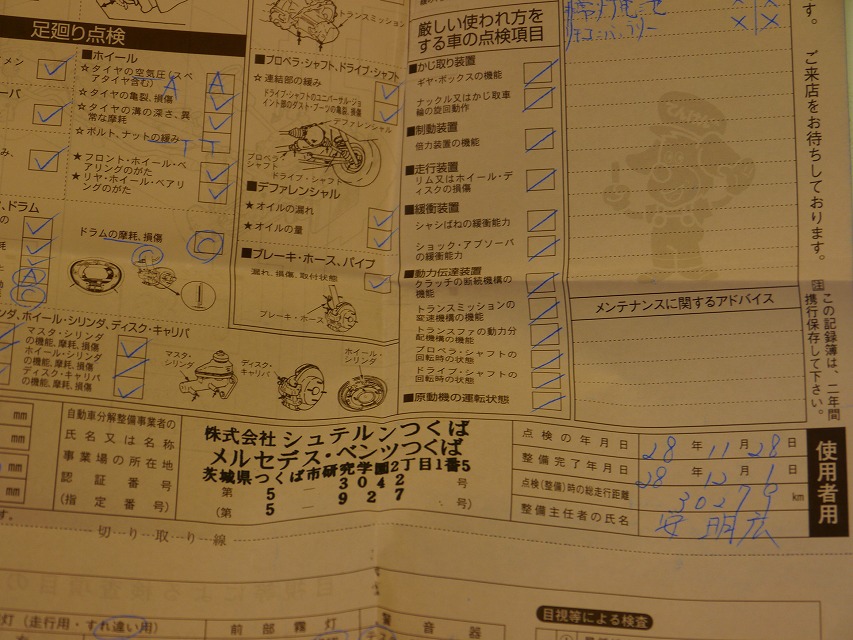 足廻り点検
■ホイール
☆タイヤの空気圧(スペアタイヤ含む) A
☆タイヤの亀裂、損傷
☆タイヤの溝の深さ、異常な摩耗
☆ボルト、ナットの緩み T T
★フロント・ホイール・ベアリングのがた
★リヤ・ホイール・ベアリングのがた
ドラムの摩耗、損傷 C
トランスミッション
■プロペラ・シャフト、ドライブ・シャフト
☆連結部の緩み
ドライブ・シャフトのユニバーサル・ジョイント部のダスト・ブーツの亀裂、損傷
デファレンシャル
プロペラ・シャフト
ドライブ・シャフト
■デファレンシャル
★オイルの漏れ
★オイルの量
■ブレーキ・ホース、パイプ
漏れ、損傷、取付状態
ブレーキ・ホース
ホイール・シリンダ、ディスク・キャリパ
マスタ・シリンダの機能、摩耗、損傷
ホイール・シリンダの機能、摩耗、損傷
ディスク・キャリパの機能、摩耗、損傷
マスタ・シリンダ
ディスク・キャリパ
ホイール・シリンダ
厳しい使われ方をする車の点検項目
■かじ取り装置
ギヤ・ボックスの機能
ナックル又はかじ取車輪の旋回動作
■制動装置
倍力装置の機能
■走行装置
リム又はホイール・ディスクの損傷
■緩衝装置
シャシばねの緩衝能力
ショック・アブソーバの緩衝能力
■動力伝達装置
クラッチの断続機構の機能
トランスミッションの変速機構の機能
トランスファの動力分配機構の機能
プロペラ・シャフトの回転時の状態
ドライブ・シャフトの回転時の状態
■原動機の運転状態
メンテナンスに関するアドバイス
す。 ご来店をお待ちしております。
注 この記録簿は、二年間携行保存して下さい。
使用者用
mm
mm
mm
mm
自動車分解整備事業者の
氏名又は名称
事業場の所在地
認証番号
(指定番号)
株式会社 シュテルンつくば
メルセデス・ベンツつくば
茨城県つくば市研究学園2丁目1番5
第 5 - 3042 号
(第 5 - 927 号)
点検の年月日 28年11月28日
整備完了年月日 28 12月1
点検(整備)時の総走行距離 30279 km
整備主任者の氏名 安 明広
切り取り線
灯(走行用・すれ違い用)
前部霧灯
警音器
目視等による検査